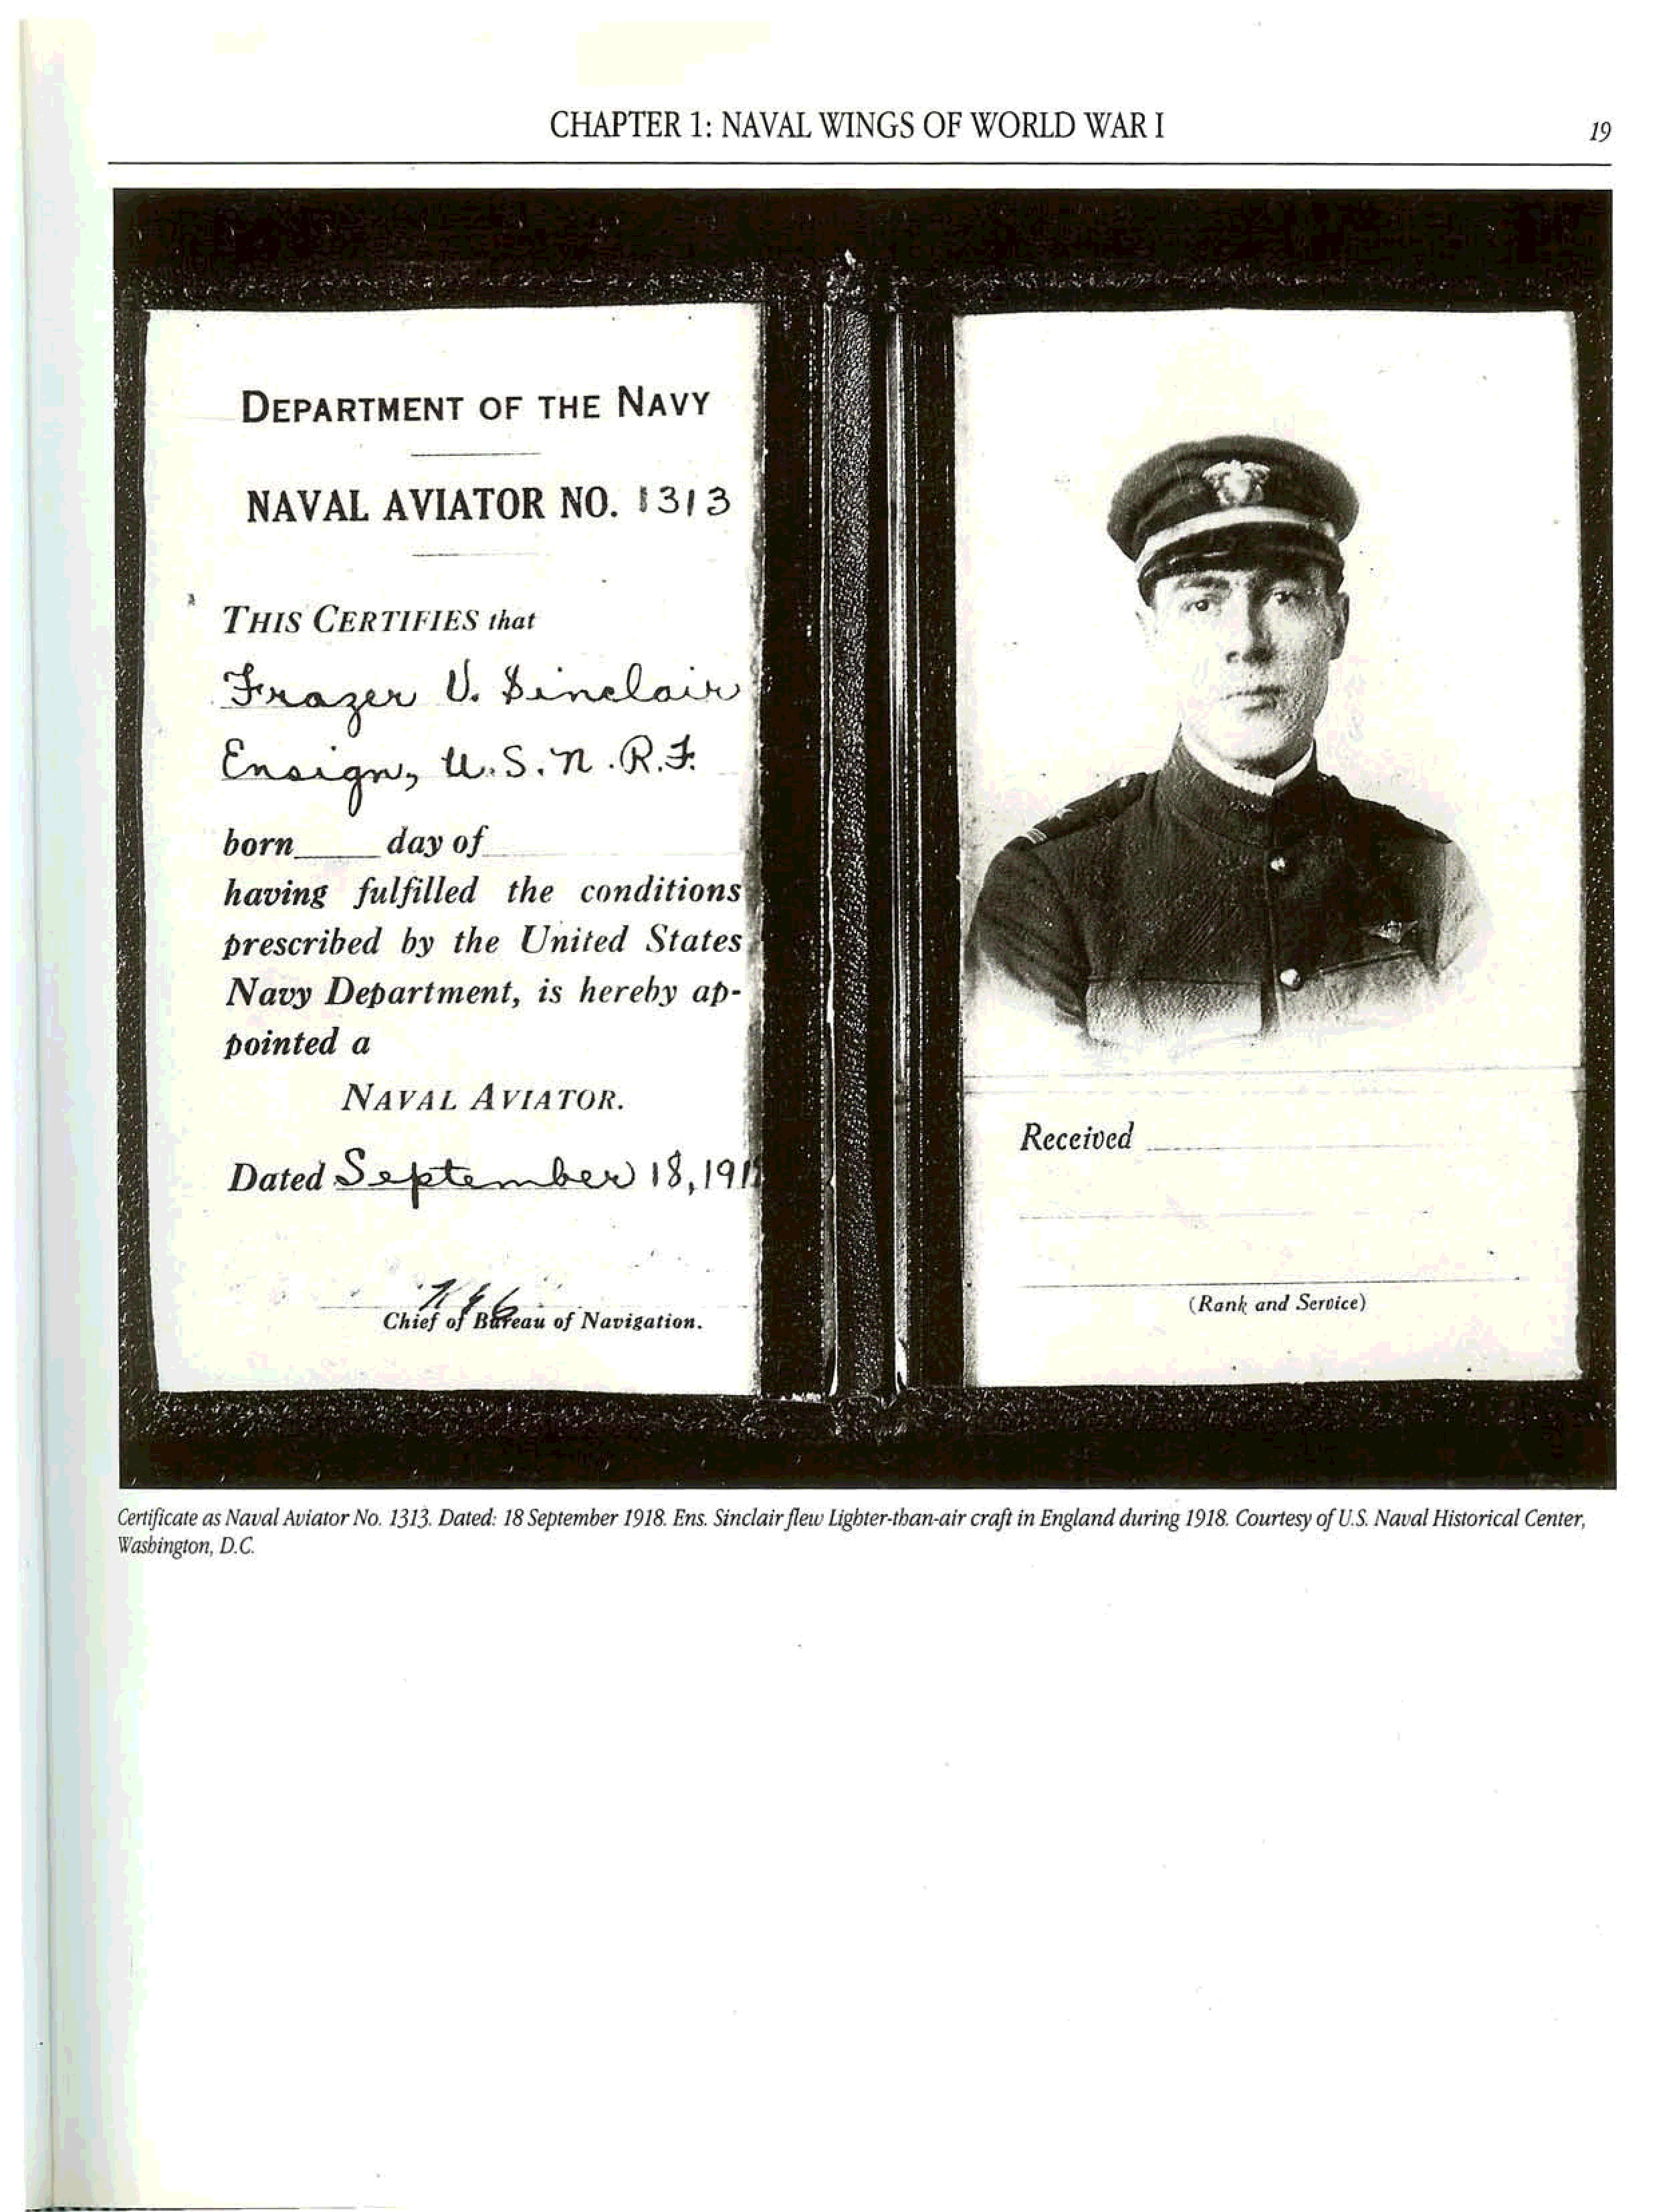 CHAPTER 1: NAVAL WINGS OF WORLD WAR I
19
DEPARTMENT OF THE NAVY
NAVAL AVIATOR NO. 1313
THIS CERTIFIES that
Frazer V. Sinclair
Ensign, U.S.N.R.F.
born____day of
having fulfilled the conditions
prescribed by the United States
Navy Department, is hereby ap-
pointed a
NAVAL AVIATOR.
Dated September 18, 191
Chief of Bureau of Navigation.
Received
(Rank and Service)
Certificate as Naval Aviator No. 1313. Dated: 18 September 1918. Ens. Sinclair flew Lighter-than-air craft in England during 1918. Courtesy of U.S. Naval Historical Center,
Washington, D.C.